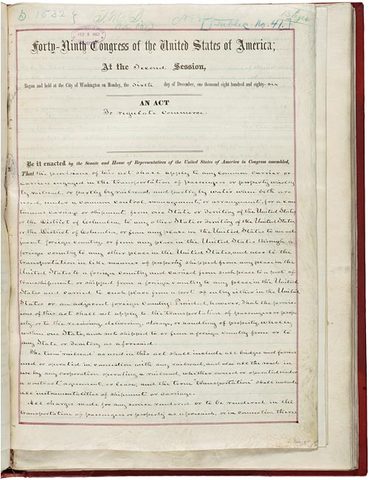 S 1532
Public No. 41.
Forty-Ninth Congress of the United States of America;
At the Second Session,
Begun and held at the City of Washington on Monday, the sixth day of December, one thousand eight hundred and eighty-six
AN ACT
To regulate commerce.
Be it enacted by the Senate and House of Representatives of the United States of America in Congress assembled,
That the provisions of this act shall apply to any common carrier or
carriers engaged in the transportation of passengers or property wholly
by railroad, or partly by railroad and partly by water when both are
used, under a common control, management, or arrangement, for a con-
tinuous carriage or shipment, from one State or Territory of the United States,
or the District of Columbia, to any other State or Territory of the United States,
or the District of Columbia, or from any place in the United States to an ad-
jacent foreign country, or from any place in the United States through a
foreign country to any other place in the United States, and also to the
transportation in like manner of property shipped from any place in the
United States to a foreign country and carried from such place to a port of
transshipment, or shipped from a foreign country to any place in the United
States and carried to such place from a port of entry either in the United
States or an adjacent foreign country: Provided, however, That the provis-
ions of this act shall not apply to the transportation of passengers or prop-
erty, or to the receiving, delivering, storage, or handling of property, wholly
within one State, and not shipped to or from a foreign country from or to
any State or Territory as aforesaid.
The term "railroad" as used in this act shall include all bridges and ferries
used or operated in connection with any railroad, and also all the road in
use by any corporation operating a railroad, whether owned or operated under
a contract, agreement, or lease; and the term "transportation" shall include
all instrumentalities of shipment or carriage.
All charges made for any service rendered or to be rendered in the
transportation of passengers or property as aforesaid, or in connection therewith